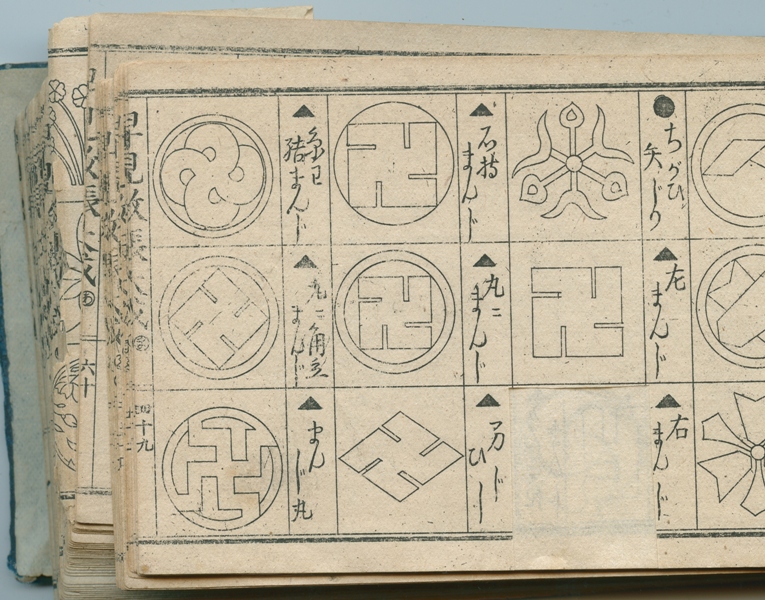 ちがひ
矢じり
左
まんじ
右
まんじ
石持
まんじ
丸ニ
まんじ
万じ
ひし
糸巳
結まんじ
丸ニ角立
まんじ
まん
じ丸
早見紋帳大成
四十九
六十